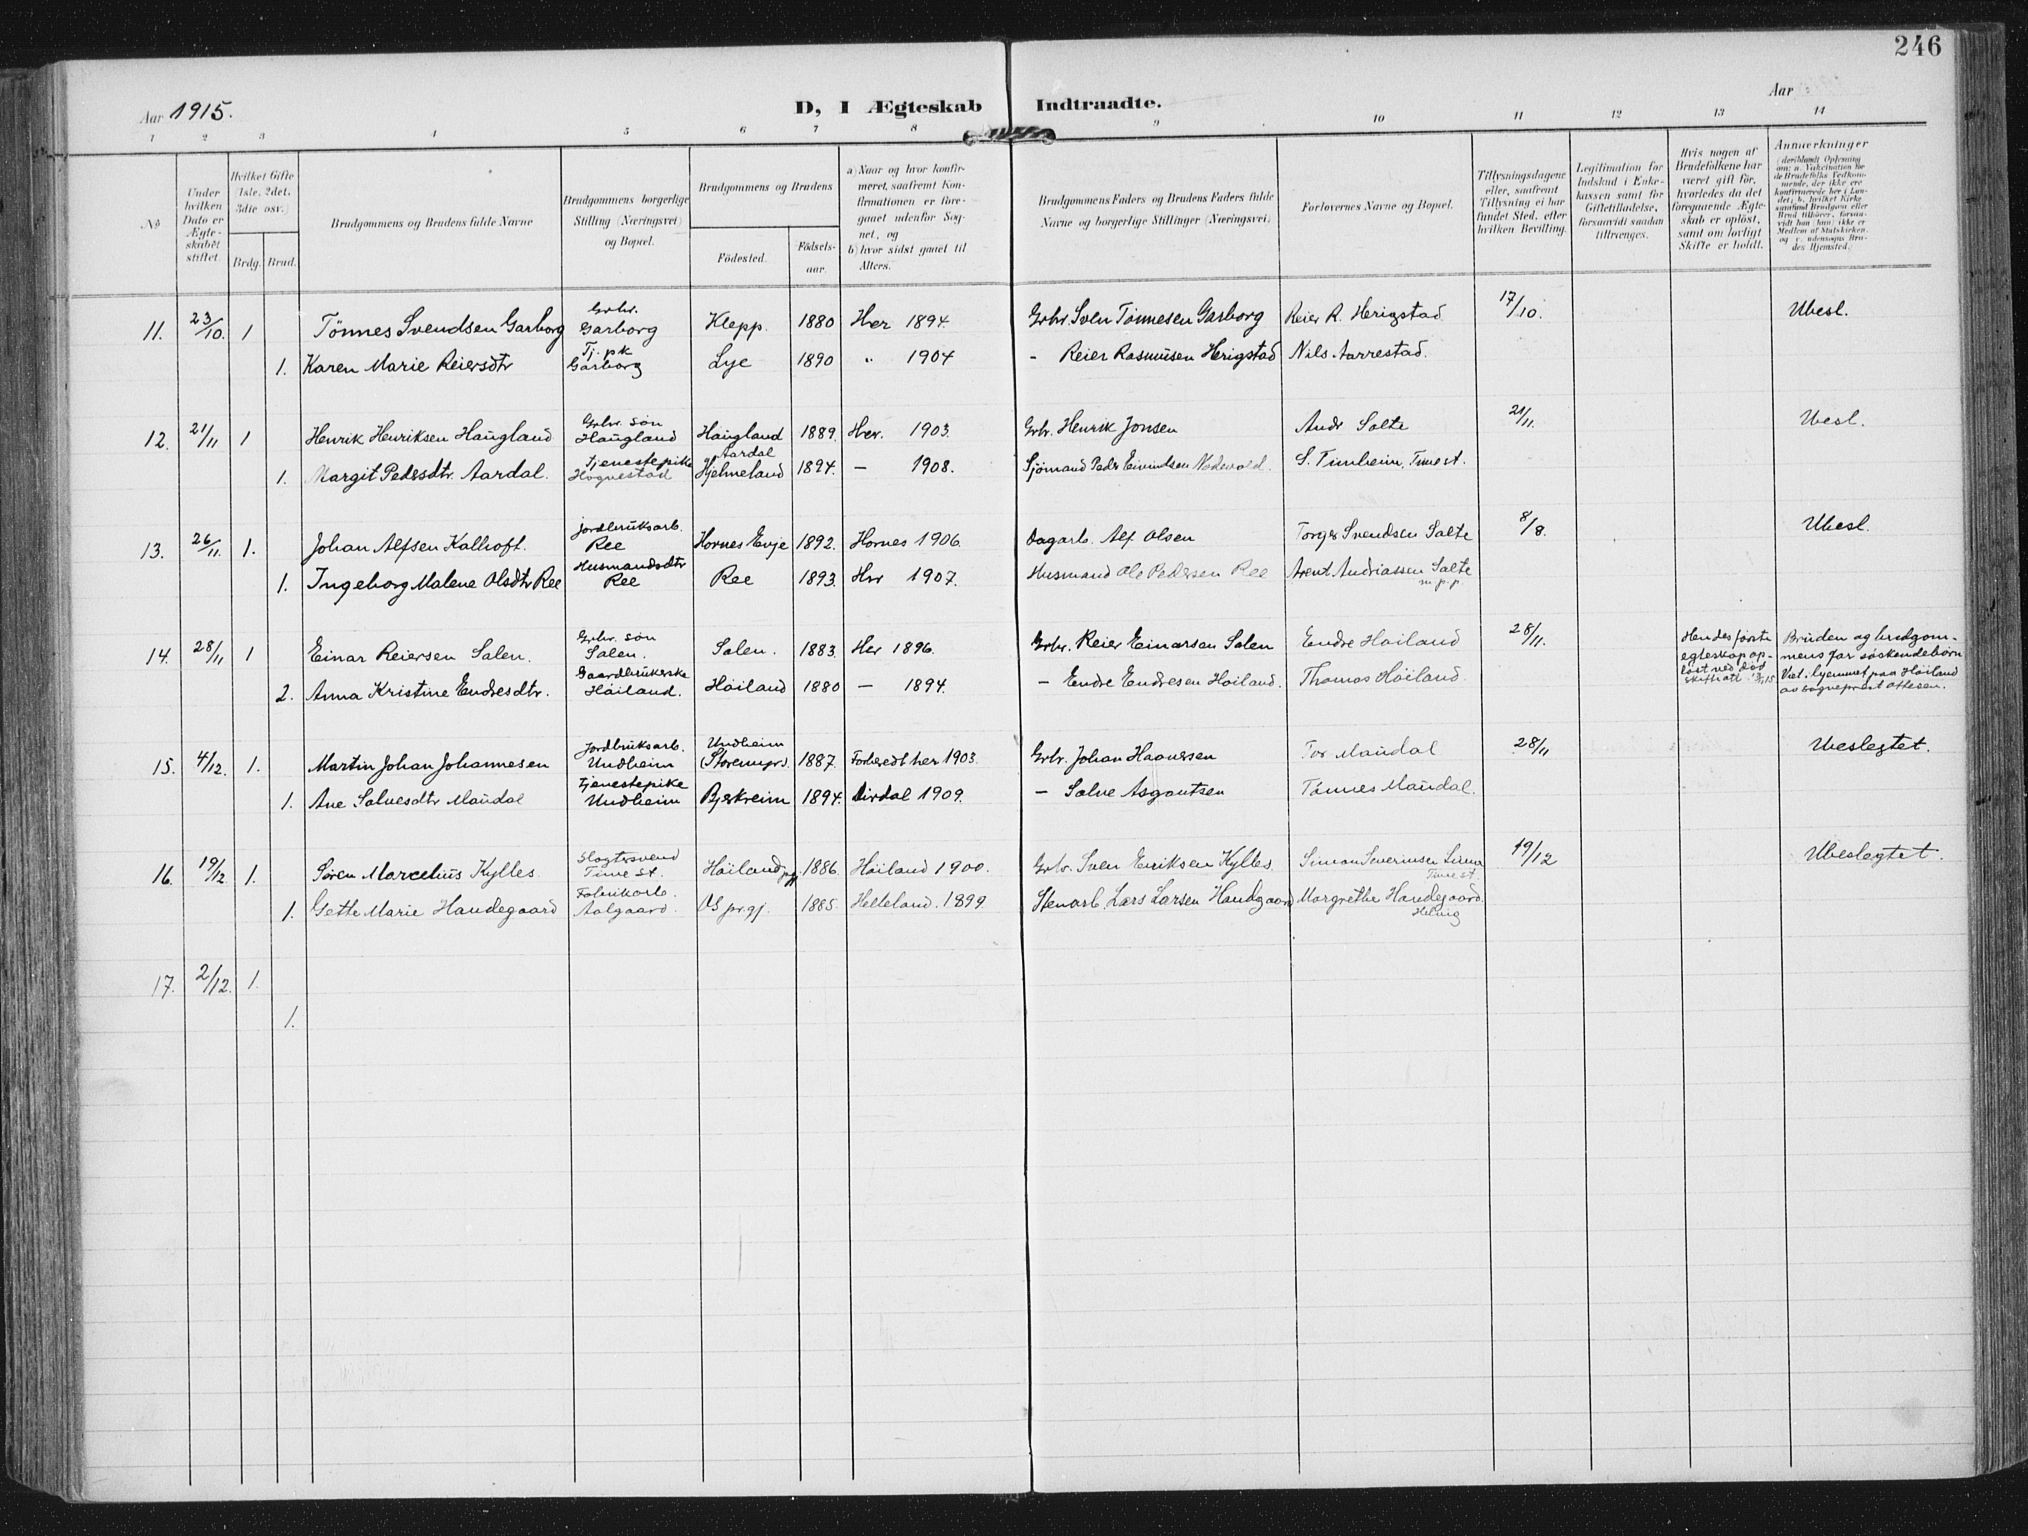 246
Aar 1915.
D, I Ægteskab Indtraadte.
Aar
1 2 3 4 5 6 7 8 9 10 11 12 13 14
No
Under hvilken Dato er Ægteskabet stiftet.
Hvilket Gifte (1ste, 2det, 3die osv.)
Brdg. Brud.
Brudgommens og Brudens fulde Navne
Brudgommens borgerlige Stilling (Næringsvei) og Bopæl.
Brudgommens og Brudens
Fødested. Fødselsaar.
a) Naar og hvor konfirmeret, saafremt Konfirmationen er foregaaet udenfor Sognet, og
b) hvor sidst gaaet til Alters.
Brudgommens Faders og Brudens Faders fulde Navne og borgerlige Stillinger (Næringsvei)
Forlovernes Navne og Bopæl.
Tillysningsdagene eller, saafremt Tillysning ei har fundet Sted, efter hvilken Bevilling.
Legitimation for Indskud i Enkekassen samt for Giftetilladelse, forsaavidt saadan tiltrænges.
Hvis nogen af Brudefolkene har været gift før, hvorledes da det foregaaende Ægteskab er opløst, samt om lovligt Skifte er holdt.
Anmærkninger
11. 23/10. 1 Tönnes Svendsen Garborg Grbr. Garborg Klepp. 1880 Her 1894. Grbr. Sven Tönnesen Garborg Reier R. Herigstad 17/10. Ubesl.
1. Karen Marie Reiersdtr Tj.pk Garborg Lye 1890 " 1904 - Reier Rasmusen Herigstad Nils Aarrestad.
12. 21/11 1 Henrik Henriksen Haugland Grbr. søn Haugland Haugland 1889. Her. 1903. Grbr. Henrik Jonsen Andr Salte 21/11. Ubesl.
1. Margit Pedersdtr. Aardal. Tjenestepike Hognestad Aardal Hjelmeland 1894. — 1908. Sjömand Peder Eivindsen S. Timheim, Time st.
13. 26/11. 1. Johan Alfsen Kalhoft. jordbruksarb. Ree Hornes Evje 1892. Hornes 1906. Dagarb. Alf Olsen Torger Svendsen Salte 8/8. Ubesl.
1. Ingeborg Malene Olsdtr Ree Husmandsdtr Ree Ree 1893. Her 1907. Husmand Ole Pedersen Ree Arent Andriassen Salte
m.p.p
14. 28/11 1 Einar Reiersen Salen. Grbr. søn Salen. Salen. 1883. Her 1896. Grbr. Reier Einarsen Salen Endre Höiland 28/11. Hendes første egteskap opløst ved død Bruden og brudgommens far søskendebörn
2. Anna Kristine Endresdtr. Gaardbrukerske Höiland. Höiland 1880 — 1894. — Endre Endresen Höiland. Thomas Höiland. Viet i hjemmet paa Höiland av sogneprest Ottesen.
15. 4/12. 1. Martin Johan Johannesen Jordbruksarb. Undheim Undheim 1887. Forberedt her 1903. Grbr. Johan Haaversen Tor Maudal 28/11 Ubeslegtet.
1. Ane Salvesdtr Maudal Tjenestepike Undheim Bjerkreim 1894. Dirdal 1909. — Salve Asgautsen Tönnes Maudal.
16. 19/12. 1. Sören Marcelius Kylles Slagtersvend Time st. Höiland pgj. 1886. Höiland 1900. Grbr. Sven Eriksen Kylles. Simon Severinsen Time st. 19/12 Ubeslegtet.
1. Gette Marie Handegaard Fabrikarb. Aalgaard. OS pr.gj. 1885. Helleland. 1899. Stenarb. Lars Larsen Handgaard Margrethe Handegaard.
17. 2/12. 1.
1.